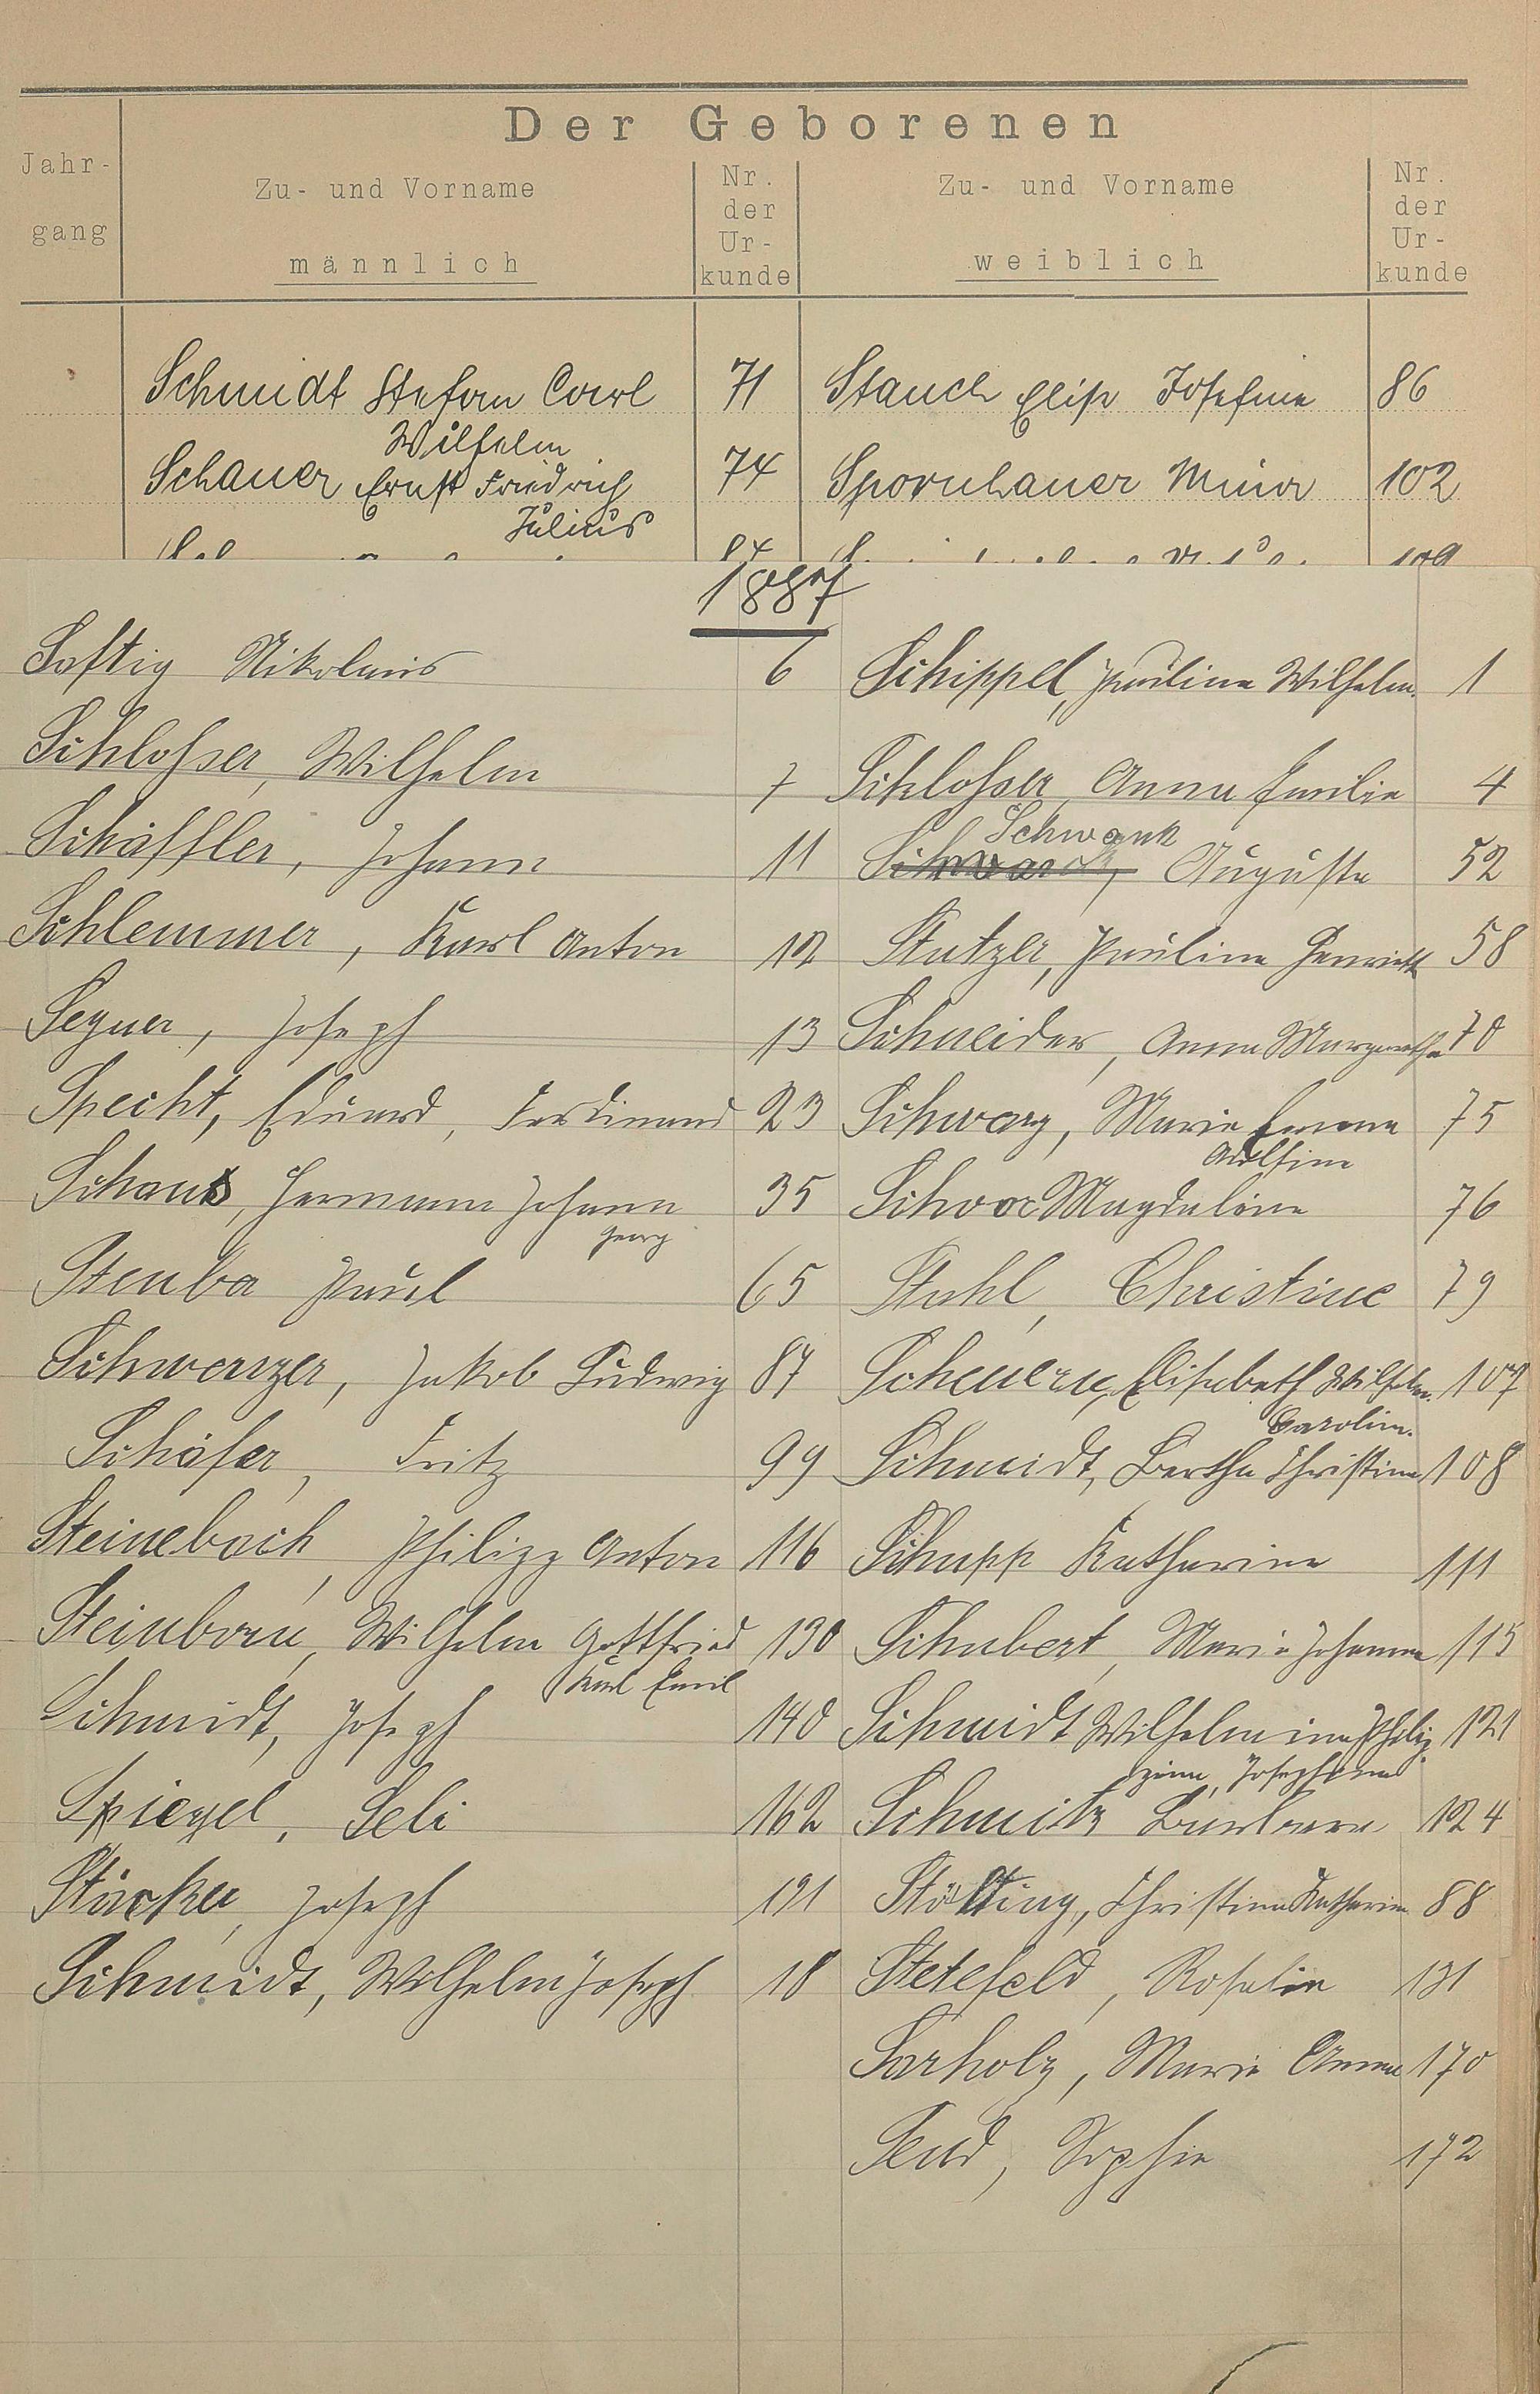 Der Geborenen
Jahr-gang
Zu- und Vorname
männlich
Nr. der Ur-kunde
Zu- und Vorname
weiblich
Nr. der Ur-kunde
Schmidt Stefan Carl 71 Stauch Elise Josefine 86
Wilhelm
Schauer Ernst Friedrich 74 Spornhauer Mina 102
Julius
1887
Saftig Nikolaus 6 Schippel, Paulina Wilhelm. 1
Schlosser, Wilhelm 7 Schlosser, Anna Emilie 4
Schwank
Schäffler, Johann 11 Auguste 52
Schlemmer, Karl Anton 12 Stutzer, Pauline Henriett 58
Segner, Joseph 13 Schneider, Anna Margaretha 70
Specht, Eduard, Ferdinand 23 Schwarz, Maria Emma 75
Adolfine
Schaus, Hermann Johann 35 Magdalena 76
Georg
Stenba Paul 65 Stahl, Christine 79
Schwenzer, Jakob Ludwig 87 Scheuern, Elisabeth Wilhelm. 107
Carolin.
Schäfer, Fritz 99 Schmidt, Bertha Christina 108
Steinebach, Philipp Anton 116 Schupp Katharina 111
Steinborn, Wilhelm Gottfried 130 Schubert, Maria Johanna 115
Karl Emil
Schmidt, Joseph 140 Schmidt Wilhelmina Philip 121
pina, Josephina
Spiegel, Seli 162 Schmitz Barbara 124
Stäcker, Joseph 191 Stölting, Christina Katharin 88
Schmidt, Wilhelm Joseph 18 Stetefeld, Rosalie 131
Sarholz, Maria Anna 170
Send, Sophie 172